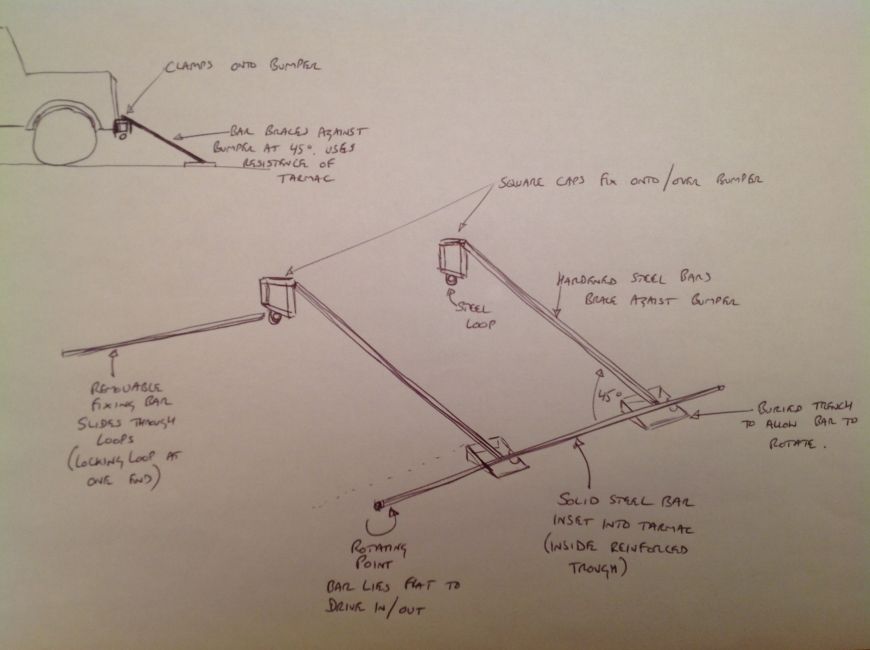 CLAMPS ONTO BUMPER
BAR BRACES AGAINST
BUMPER AT 45°. USES
RESISTENCE OF
TARMAC
SQUARE CAPS FIX ONTO/OVER BUMPER
HARDENED STEEL BARS
BRACE AGAIST BUMPER
STEEL
LOOP
REMOVABLE
FIXING BAR
SLIDES THROUGH
LOOPS
(LOCKING LOOP AT
ONE END)
45°
BURIED TRENCH
TO ALLOW BAR TO
ROTATE.
SOLID STEEL BAR
INSET INTO TARMAC
(INSIDE REINFORCED
TROUGH)
ROTATING
POINT
BAR LIES FLAT TO
DRIVE IN/OUT